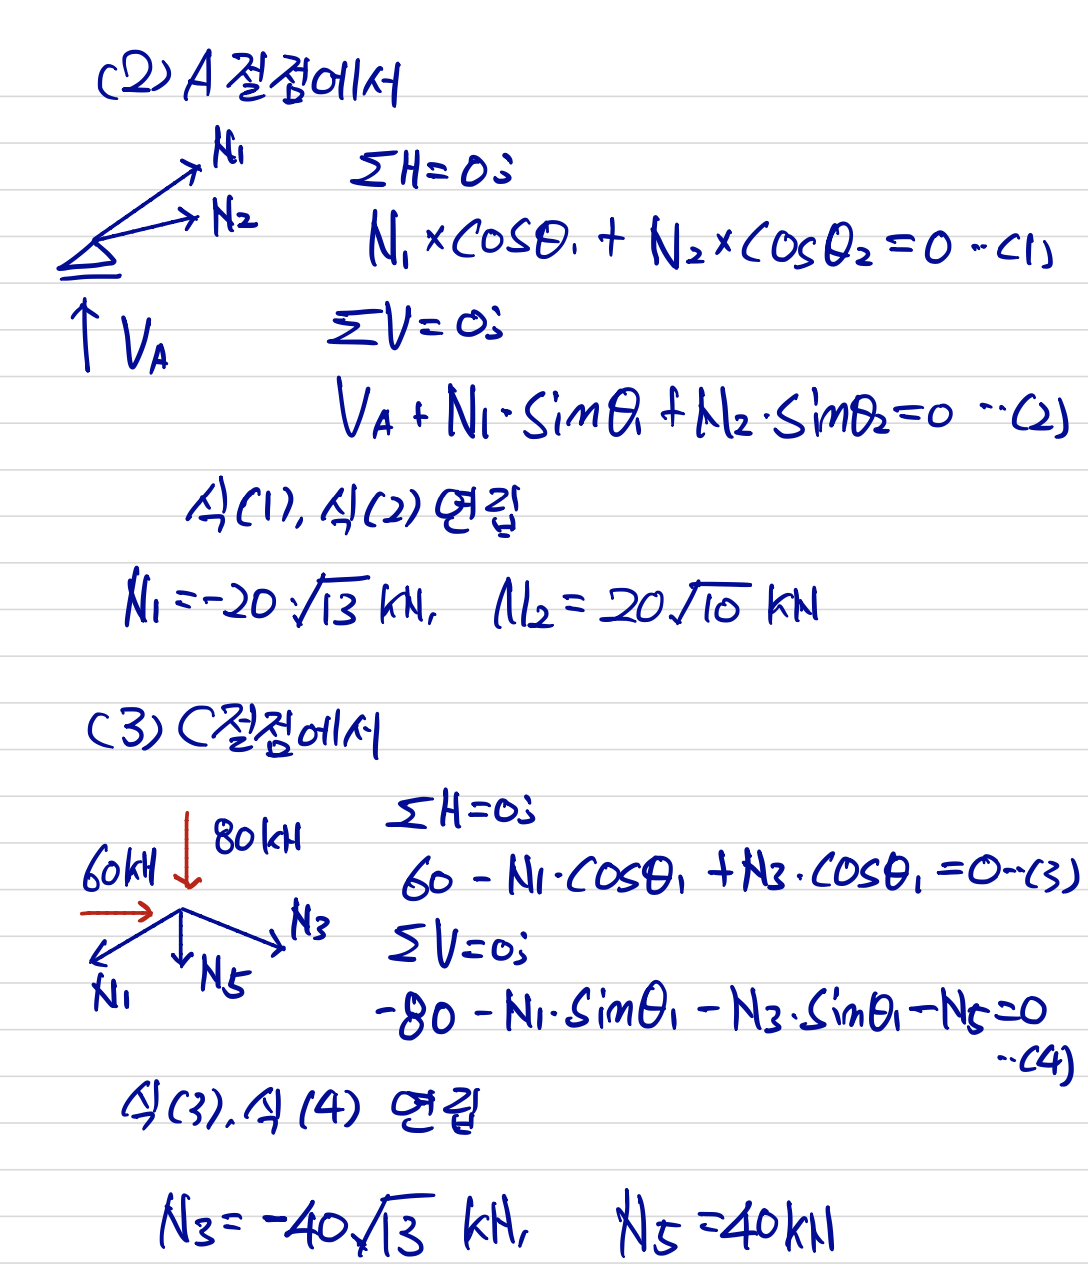 (2) A 절점에서
N₁
N₂
V_A
ΣH=0;
N₁×cosθ₁ + N₂×cosθ₂ = 0 ···(1)
ΣV=0;
V_A + N₁·sinθ₁ + N₂·sinθ₂ = 0 ···(2)
식(1), 식(2) 연립
N₁ = -20√13 kN, N₂ = 20√10 kN
(3) C절점에서
80kN
60kN
N₃
N₅
N₁
ΣH=0;
60 - N₁·cosθ₁ + N₃·cosθ₁ = 0 ···(3)
ΣV=0;
-80 - N₁·sinθ₁ - N₃·sinθ₁ - N₅ = 0
···(4)
식(3), 식(4) 연립
N₃ = -40√13 kN, N₅ = 40kN